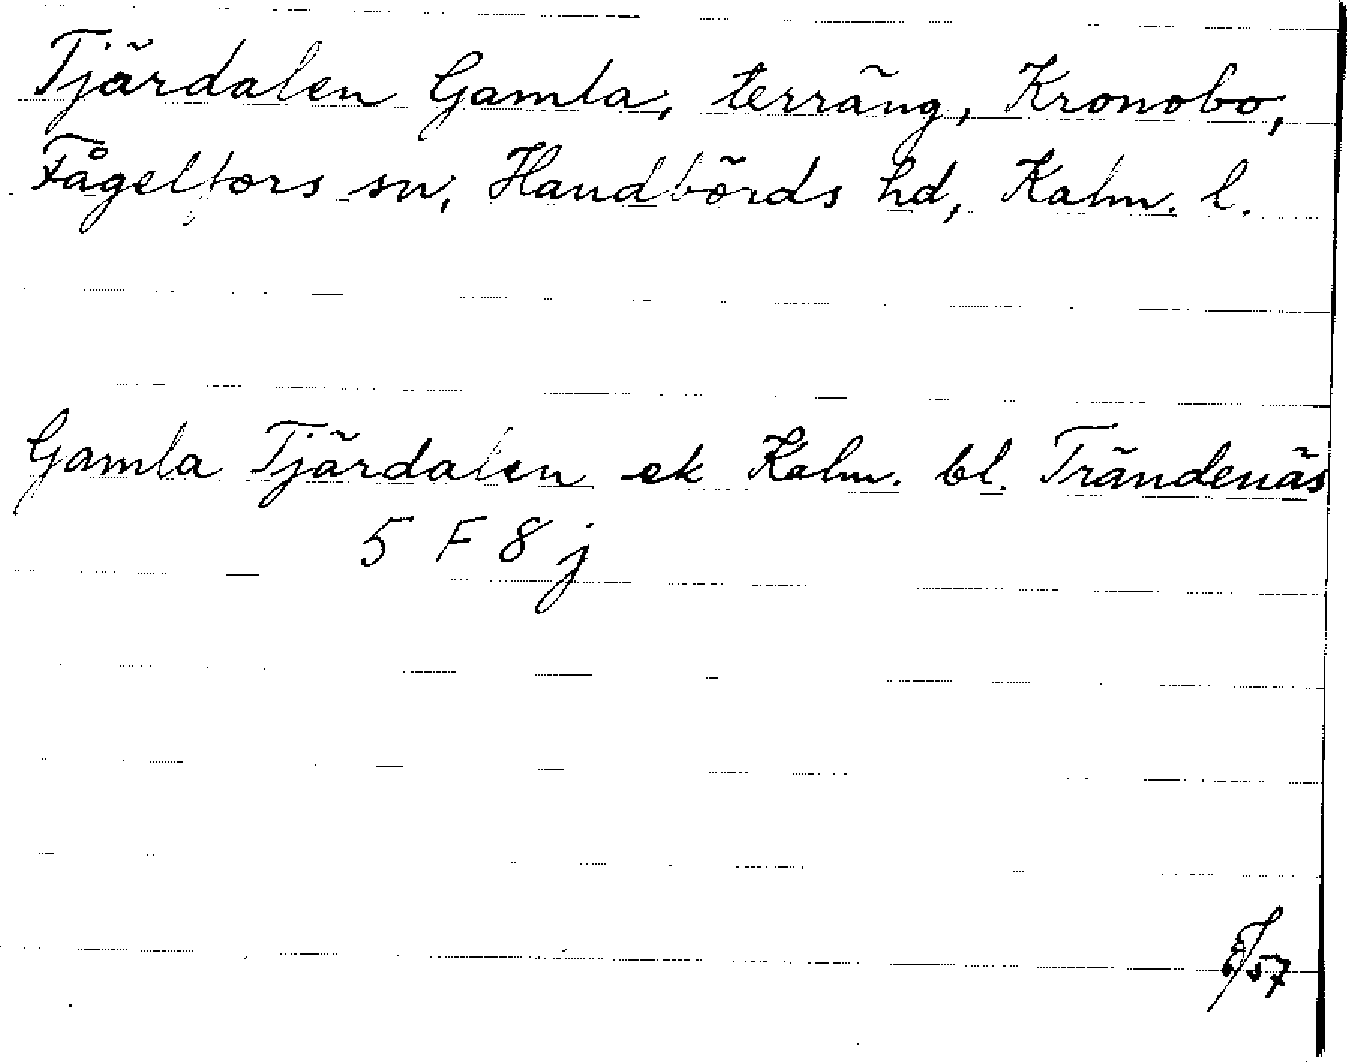 Tjärdalen Gamla, terräng, Kronobo,
Fågelfors sn, Handbörds hd, Kalm. l.
Gamla Tjärdalen ek Kalm. bl. Trändenäs
5 F 8 j
57